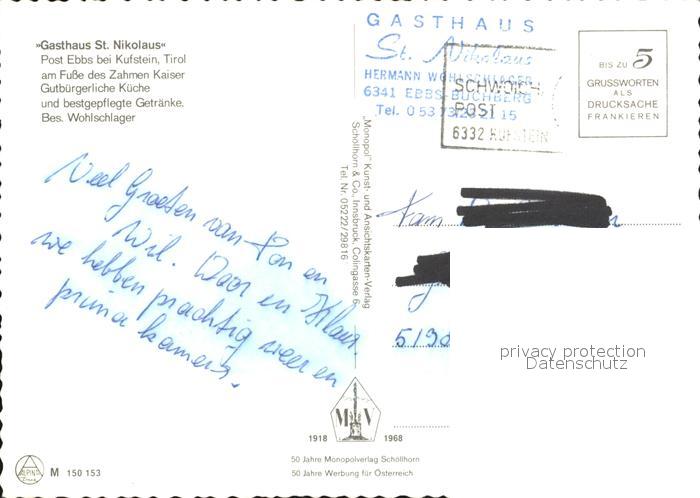 »Gasthaus St. Nikolaus«
Post Ebbs bei Kufstein, Tirol
am Fuße des Zahmen Kaiser
Gutbürgerliche Küche
und bestgepflegte Getränke.
Bes. Wohlschlager
GASTHAUS
St. Nikolaus
HERMANN WOHLSCHLAGER
6341 EBBS-BUCHBERG
Tel. 0 53 73/
15
SCHWOICH
POST
6332 KUFSTEIN
BIS ZU 5
GRUSSWORTEN
ALS
DRUCKSACHE
FRANKIEREN
„Monopol" Kunst- und Ansichtskarten-Verlag
Schöllhorn & Co., Innsbruck, Colingasse 6,
Tel. Nr. 05222/29816
Veel Groeten van Ton en
Wil. Door en Klaus.
we hebben prachtig weer en
prima kamers.
Fam
5190
privacy protection
Datenschutz
M V
1918 1968
50 Jahre Monopolverlag Schöllhorn
50 Jahre Werbung für Österreich
ALPINA
M 150 153